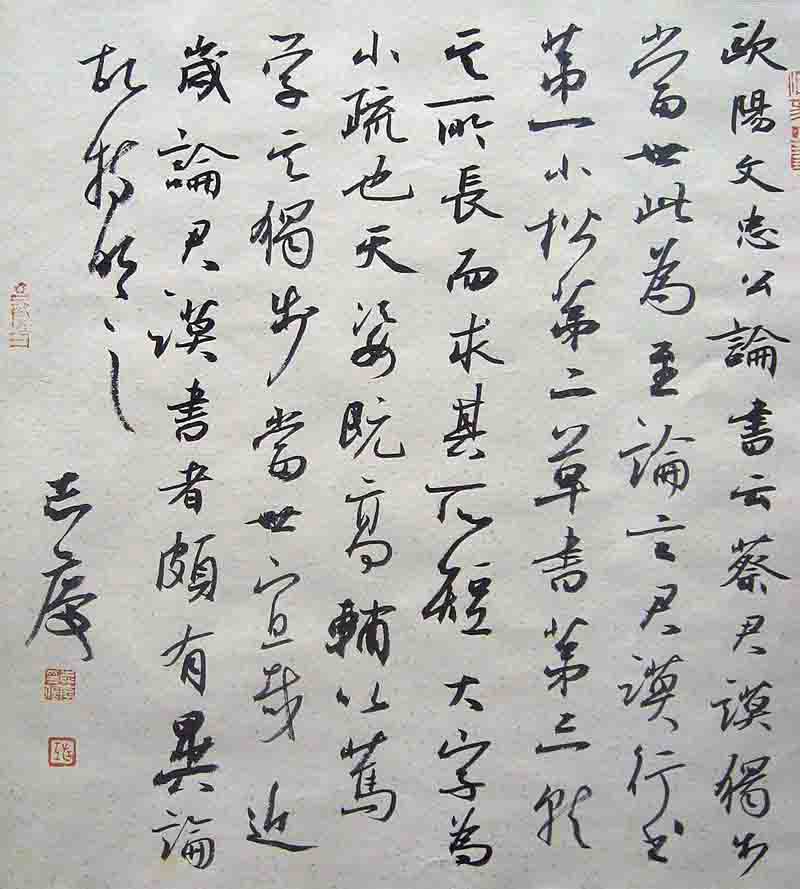 歐陽文忠公論書云蔡君謨獨步
當世此為至論言君謨行書
第一小楷第二草書第三就
其所長而求其所短大字為
小疏也天姿既高輔以篤
学其獨步當世宜哉近
歲論君謨書者頗有異論
故特明之
志慶